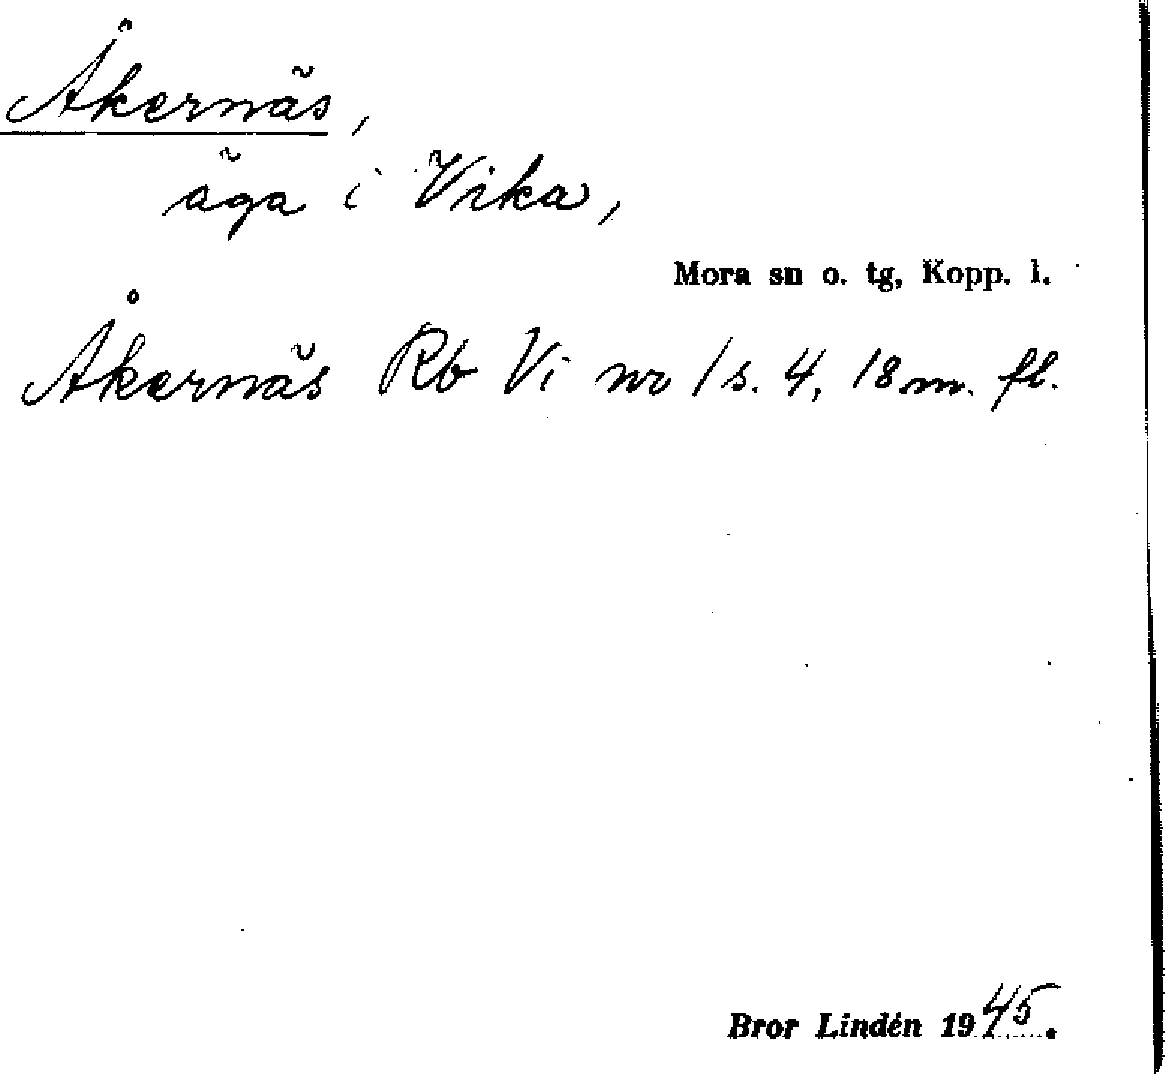 Åkernäs,
äga i Vika,
Mora sn o. tg, Kopp. l.
Åkernäs Rb Vi nr 1 s. 4, 18 m. fl.
Bror Lindén 1945.